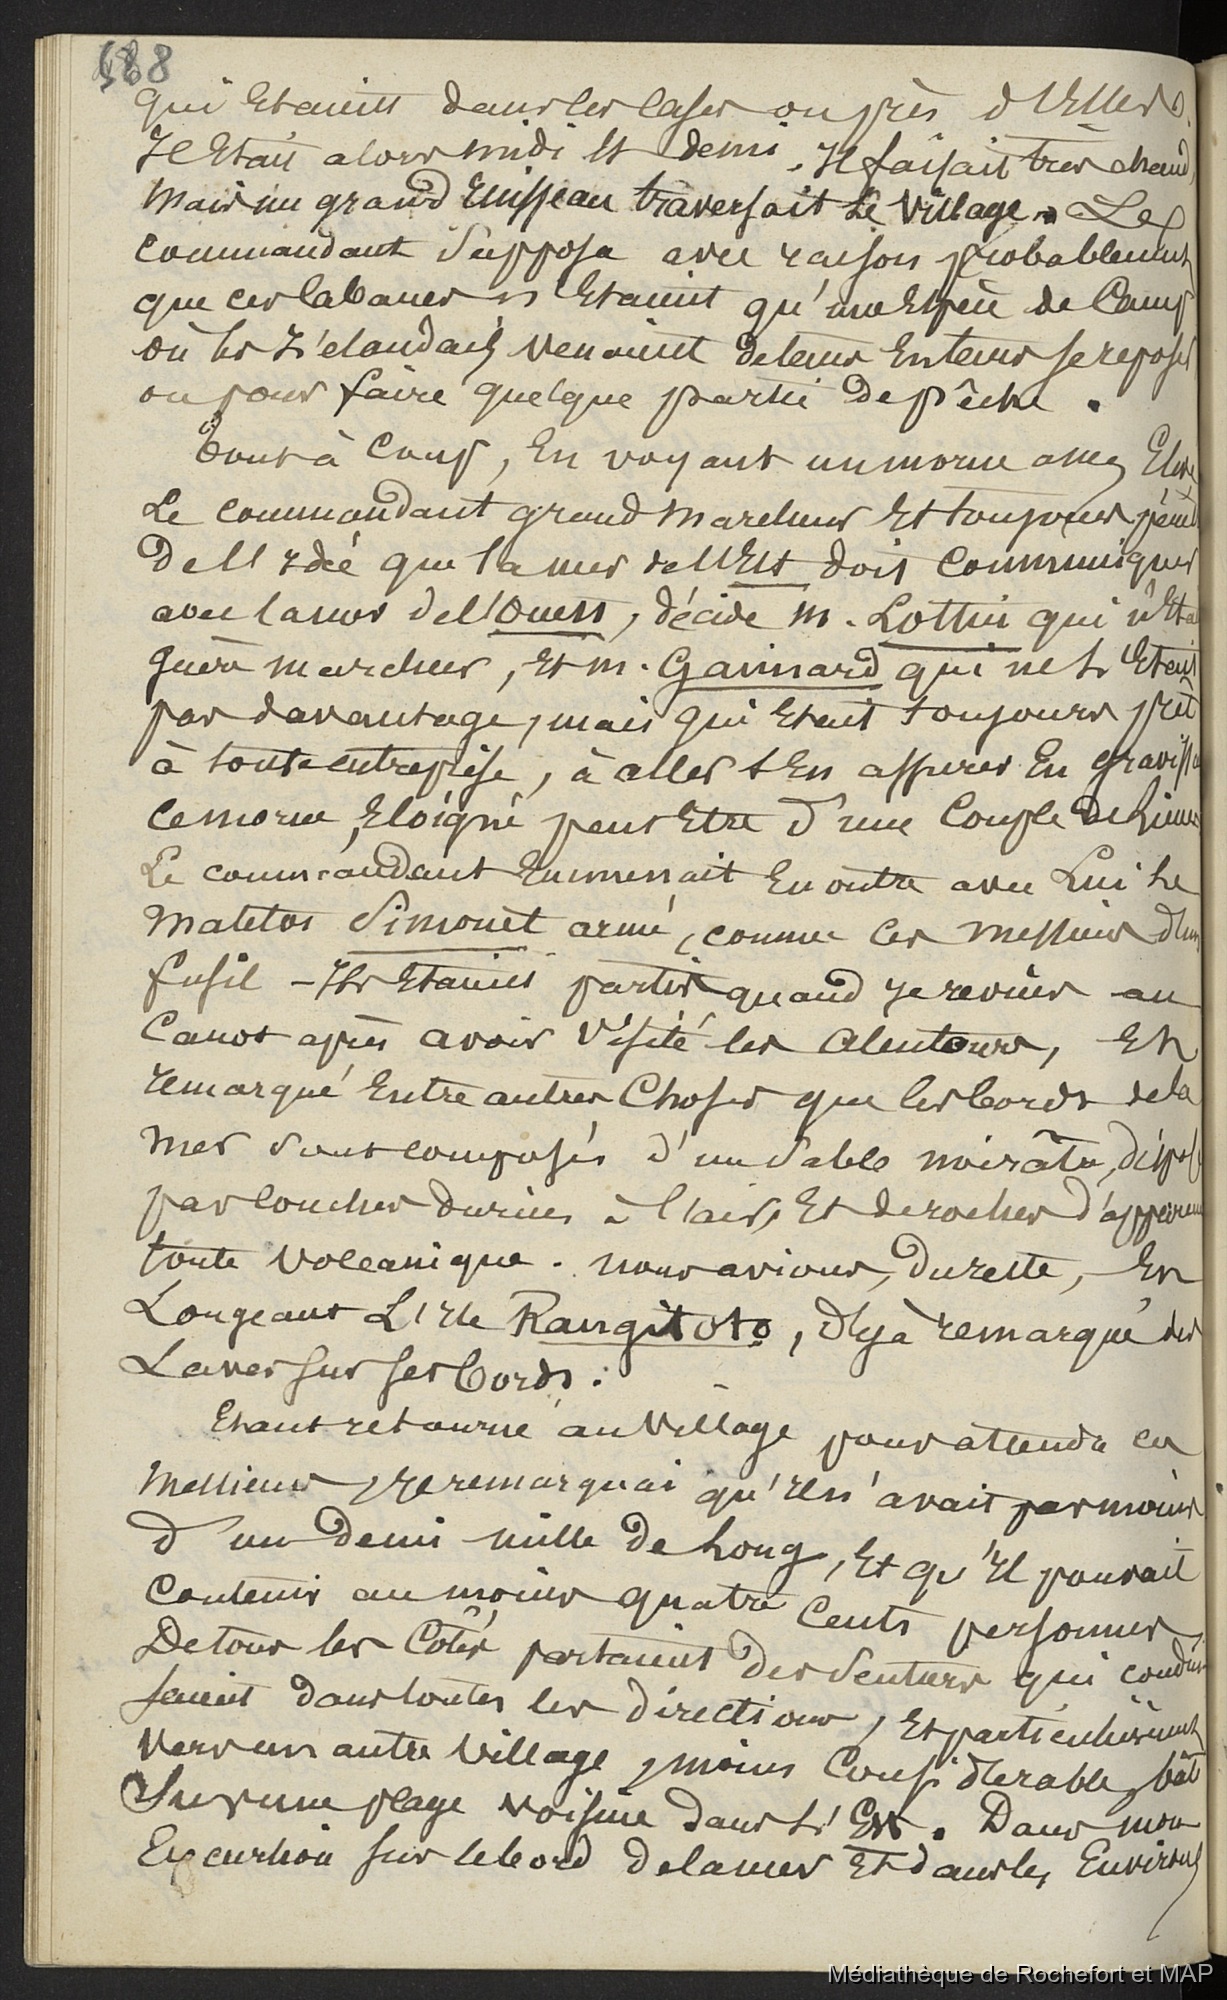 488
qui Etaient dans les Cases ou près d'Elles.
Il Etait alors midi Et demi. Il faisait très chaud,
Mais un grand Ruisseau traversait Le Village. Le
Commandant Supposa avec raison probablement
que ces Cabanes n'Etaient qu'une Espèce de Camp
où les Zélandais venaient de tems En tems se reposer
ou pour faire quelque partie De pêche.
Tout à Coup, En voyant un morne assez Elevé
Le Commandant grand Marcheur Et toujours
De l'Idée que la mer de l'Est doit Communiquer
avec la mer de l'Ouest, décide M. Lottin qui n'Etait
guère marcheur, Et M. Gaimard qui ne l'Etait
pas davantage, mais qui Etait toujours prêt
à toute entreprise, à aller s'En assurer En gravissant
Ce morne, Eloigné peut Etre d'une Couple de Lieues
Le commandant Emmenait En outre avec Lui Le
Matelot Simonet armé, comme ces Messieurs d'un
fusil – Ils Etaient partis quand Je revins au
Canot après avoir Visité les Alentours, Et
remarqué Entre autres Choses que les bords de la
Mer Sont composés d'un Sable noirâtre, disposé
par Couches durcies à l'air, Et de rochers d'apparence
toute Volcanique. Nous avions, Du reste, En
Longeant L'Ile Rangitoto, déjà remarqué des
Laves sur ses bords.
Etant retourné au Village pour attendre ces
Messieurs, Je remarquai qu'Il n'avait pas moins
d'un Demi mille De Long, Et qu'Il pouvait
Contenir au moins quatre Cents personnes,
De tous les Côtés partaient Des Sentiers qui condui-
saient dans toutes les directions, Et particulièrement
Vers un autre Village, moins Considérable, bâti
Sur une plage Voisine dans L'Est. Dans mon
Excursion sur le bord de la mer Et dans les Environs
Médiathèque de Rochefort et MAP